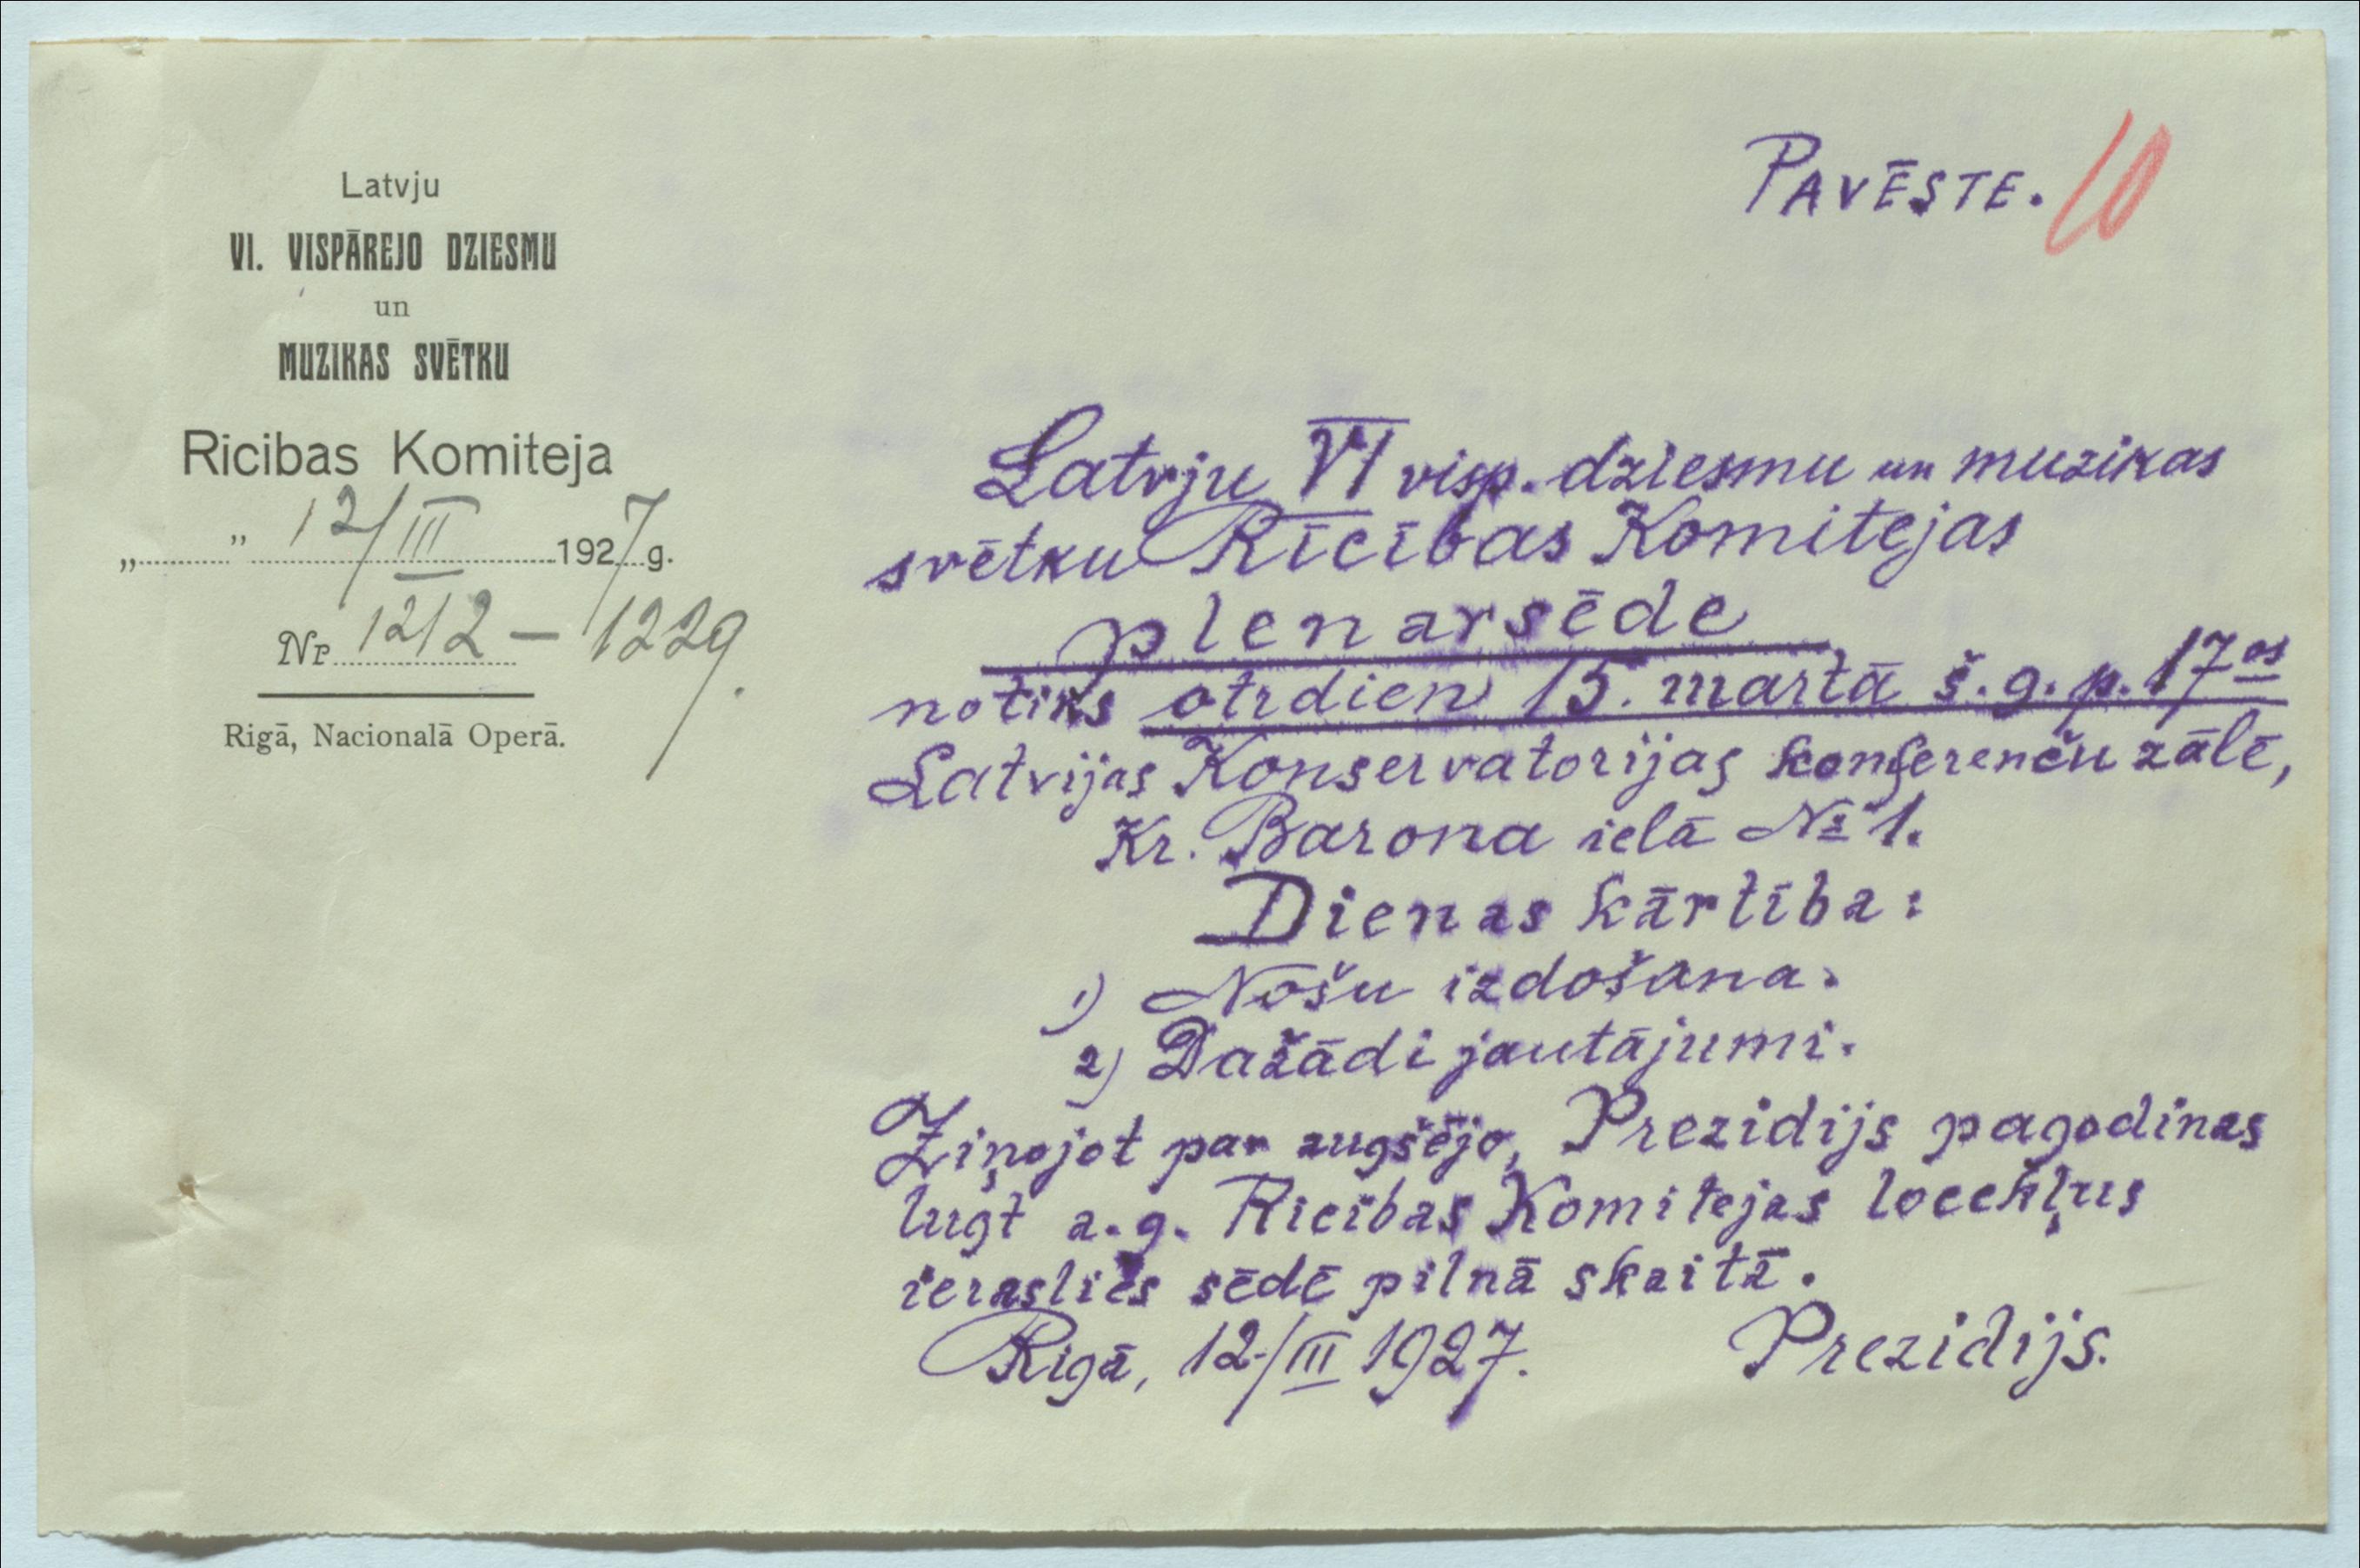 Latvju
VI. VISPĀREJO DZIESMU
un
MUZIKAS SVĒTKU
Ricibas Komiteja
„ " 12/III 1927 g.
Nr 1212 – 1229.
Rigā, Nacionalā Operā.
PAVĒSTE. 10
Latvju VI visp. dziesmu un muzikas
svētku Rīcības Komitejas
plenarsēde
notiks otrdien 15. martā š.g. p. 17os
Latvijas Konservatorijas konferenču zālē,
Kr. Barona ielā № 1.
Dienas kārtība:
1) Nošu izdošana.
2) Dažādi jautājumi.
Ziņojot par augšējo, Prezidijs pagodinas
lugt a.g. Ricības Komitejas locekļus
ierasties sēdē pilnā skaitā.
Rigā, 12/III 1927.
Prezidijs.